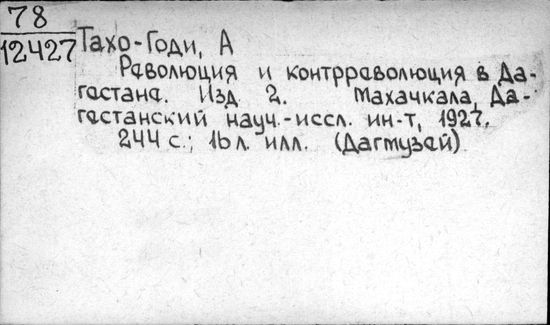 78
12427
Тахо-Годи, А
Революция и контрреволюция в Да-
гестане. Изд 2. Махачкала, Да-
гестанский науч.-иссл. ин-т, 1927.
244 с.; 16 л. илл. (Дагмузей)